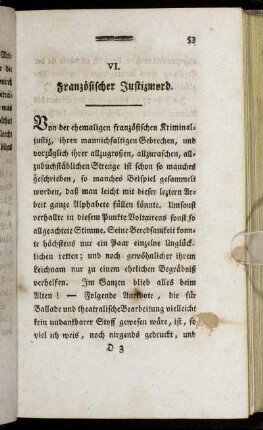 53
VI.
Französischer Justizmord.
Von der ehemaligen französischen Kriminal-
justiz, ihren mannichfaltigen Gebrechen, und
vorzüglich ihrer allzugroßen, allzuraschen, all-
zubuchstäblichen Strenge ist schon so manches
geschrieben, so manches Beispiel gesammelt
worden, daß man leicht mit dieser letztern Ar-
beit ganze Alphabete füllen könnte. Umsonst
verhallte in diesem Punkte Voltairens sonst so
allgeachtete Stimme. Seine Beredsamkeit konn-
te höchstens nur ein Paar einzelne Unglück-
lichen retten; und noch gewöhnlicher ihrem
Leichnam nur zu einem ehrlichen Begräbniß
verhelfen. Im Ganzen blieb alles beim
Alten! — Folgende Anekdote, die für
Ballade und theatralische Bearbeitung vielleicht
kein undankbarer Stoff gewesen wäre, ist, so
viel ich weis, noch nirgends gedruckt, und
D 3